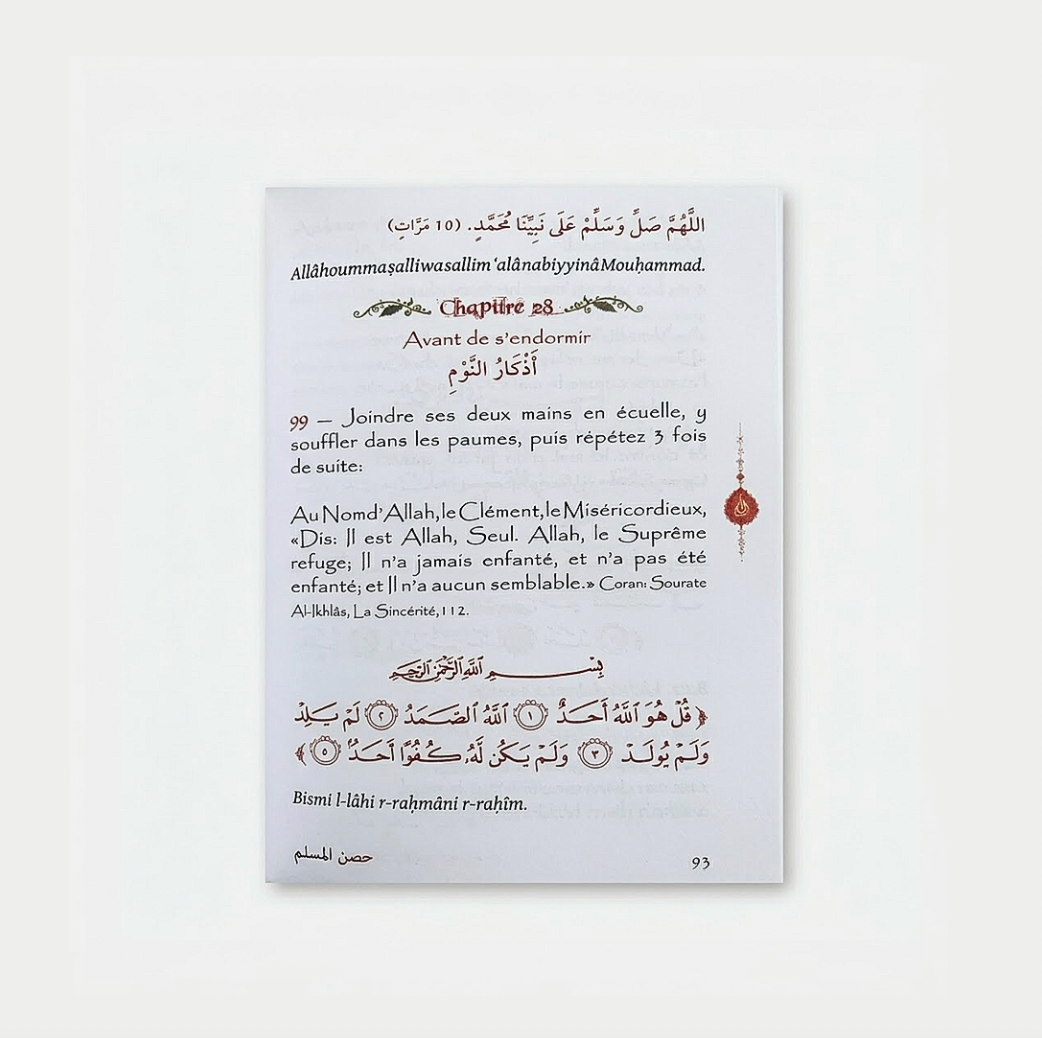 اللَّهُمَّ صَلِّ وَسَلِّمْ عَلَى نَبِيِّنَا مُحَمَّدٍ. (10 مَرَّاتٍ)
Allâhoumma ṣalli wa sallim ‘alâ nabiyyinâ Mouḥammad.
Chapitre 28
Avant de s’endormir
أَذْكَارُ النَّوْمِ
99 — Joindre ses deux mains en écuelle, y
souffler dans les paumes, puis répétez 3 fois
de suite:
Au Nom d’Allah, le Clément, le Miséricordieux,
«Dis: Il est Allah, Seul. Allah, le Suprême
refuge; Il n’a jamais enfanté, et n’a pas été
enfanté; et Il n’a aucun semblable.» Coran: Sourate
Al-Ikhlâs, La Sincérité, 112.
بِسْمِ اللَّهِ الرَّحْمَٰنِ الرَّحِيمِ
﴿ قُلْ هُوَ اللَّهُ أَحَدٌ ١ اللَّهُ الصَّمَدُ ٢ لَمْ يَلِدْ
وَلَمْ يُولَدْ ٣ وَلَمْ يَكُن لَّهُ كُفُوًا أَحَدٌ ٥ ﴾
Bismi l-lâhi r-raḥmâni r-raḥîm.
حصن المسلم
93